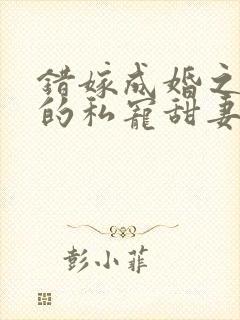 错嫁成婚之
的私宠甜妻
彭小菲